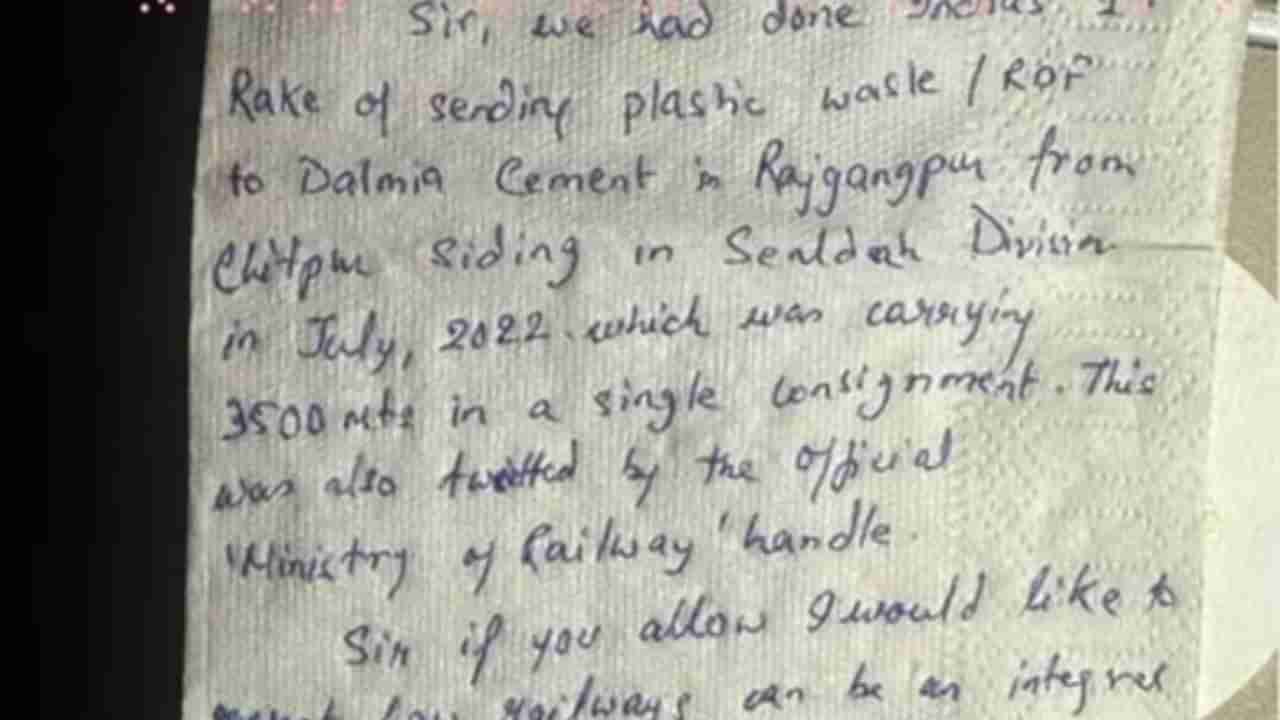 Sir, we had done India's 1st
Rake of sending plastic waste / RDF
to Dalmia Cement in Rajgangpur from
Chitpur siding in Sealdah Division
in July, 2022 which was carrying
3500 Mts in a single consignment. This
was also twitted by the official
'Ministry of Railway' handle.
Sir if you allow I would like to
present how railways can be an integral